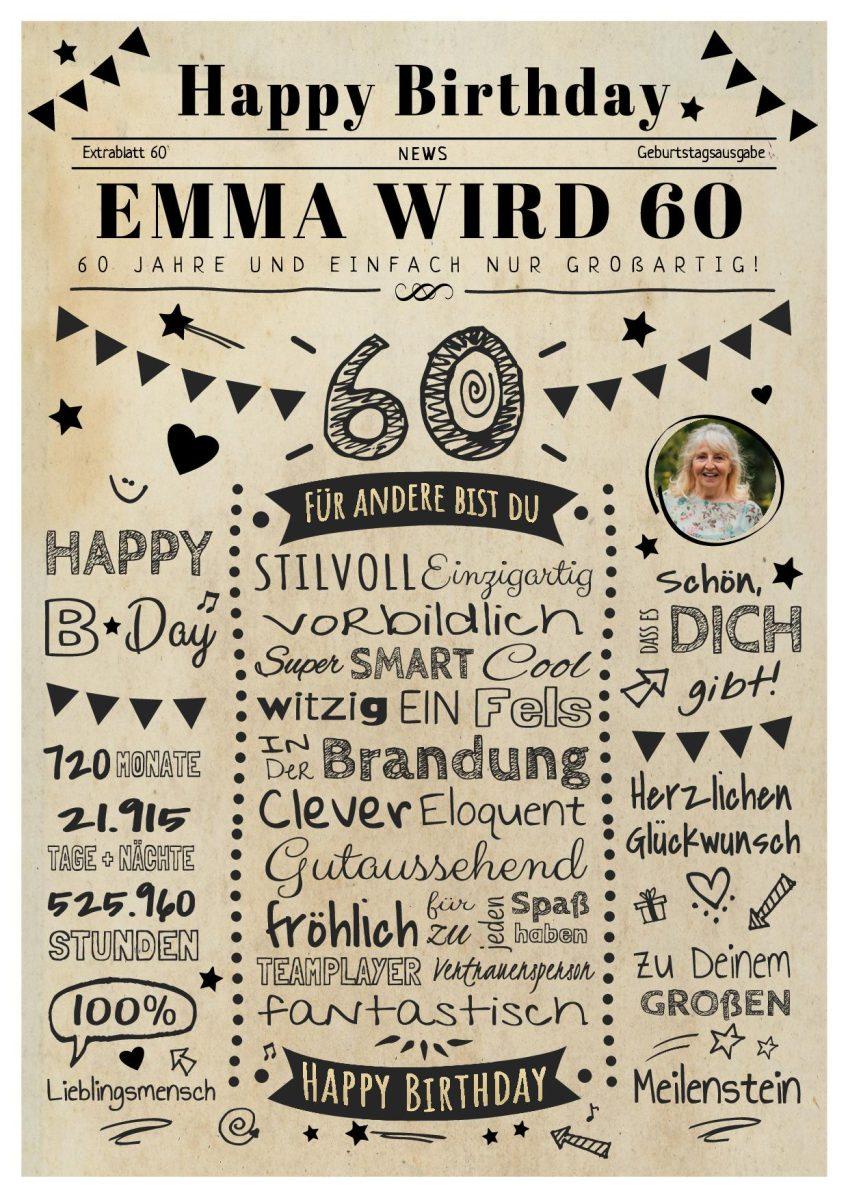 Happy Birthday
Extrablatt 60 NEWS Geburtstagsausgabe
EMMA WIRD 60
60 JAHRE UND EINFACH NUR GROßARTIG!
60
HAPPY
B Day
720 MONATE
21.915
TAGE + NÄCHTE
525.960
STUNDEN
100%
Lieblingsmensch
FÜR ANDERE BIST DU
STILVOLL Einzigartig
VORbildlich
Super SMART Cool
witzig EIN Fels
IN DER Brandung
Clever Eloquent
Gutaussehend
fröhlich für jeden Spaß
zu haben
TEAMPLAYER Vertrauensperson
fantastisch
HAPPY BIRTHDAY
Schön,
DASS ES DICH
gibt!
Herzlichen
Glückwunsch
zu Deinem
GROßEN
Meilenstein